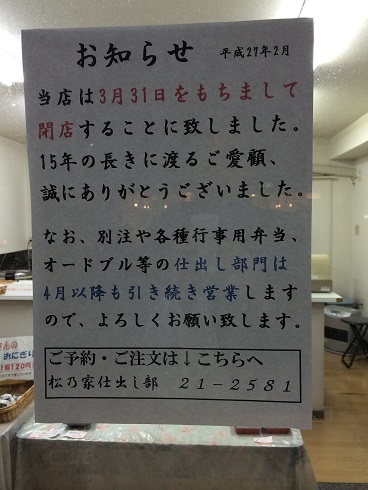 お知らせ 平成27年2月
当店は3月31日をもちまして
閉店することに致しました。
15年の長きに渡るご愛顧、
誠にありがとうございました。
なお、別注や各種行事用弁当、
オードブル等の仕出し部門は
4月以降も引き続き営業します
ので、よろしくお願い致します。
ご予約・ご注文は↓こちらへ
松乃家仕出し部 21-2581
さんの
おにぎり
1個120円